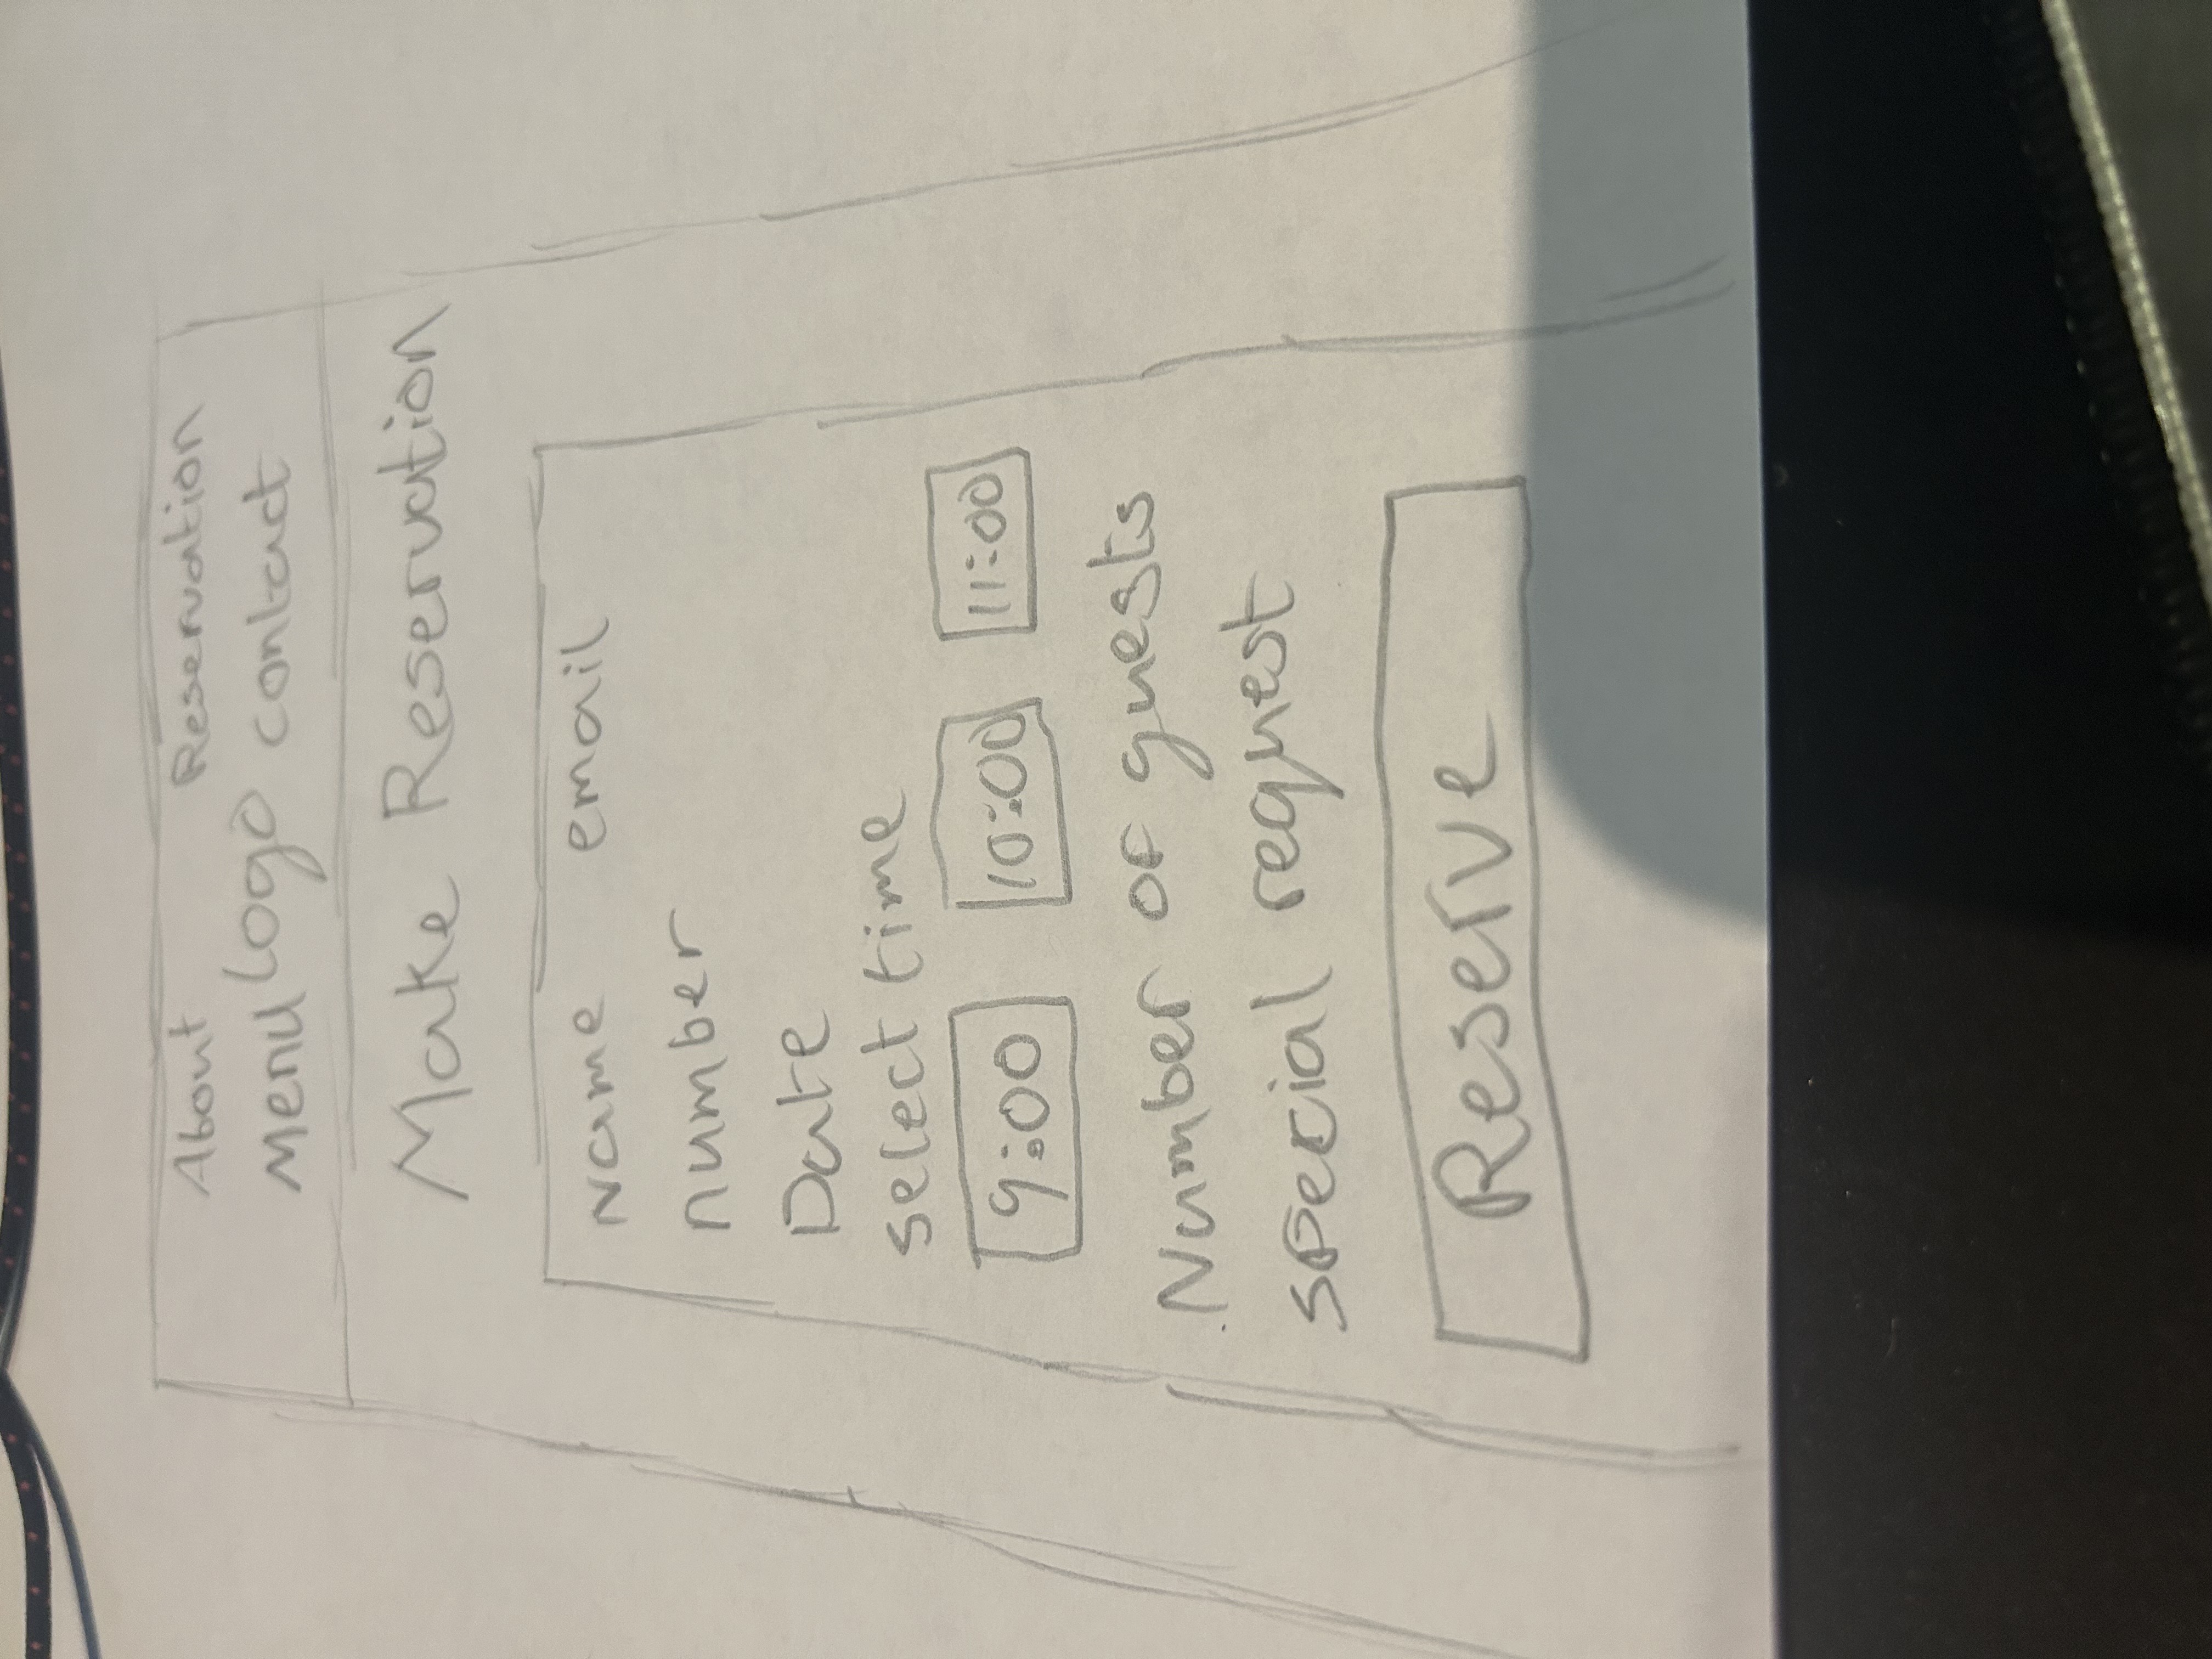 About Reservation
Menu Logo contact
Make Reservation
Name email
number
Date
select time
9:00 10:00 11:00
Number of guests
special request
Reserve